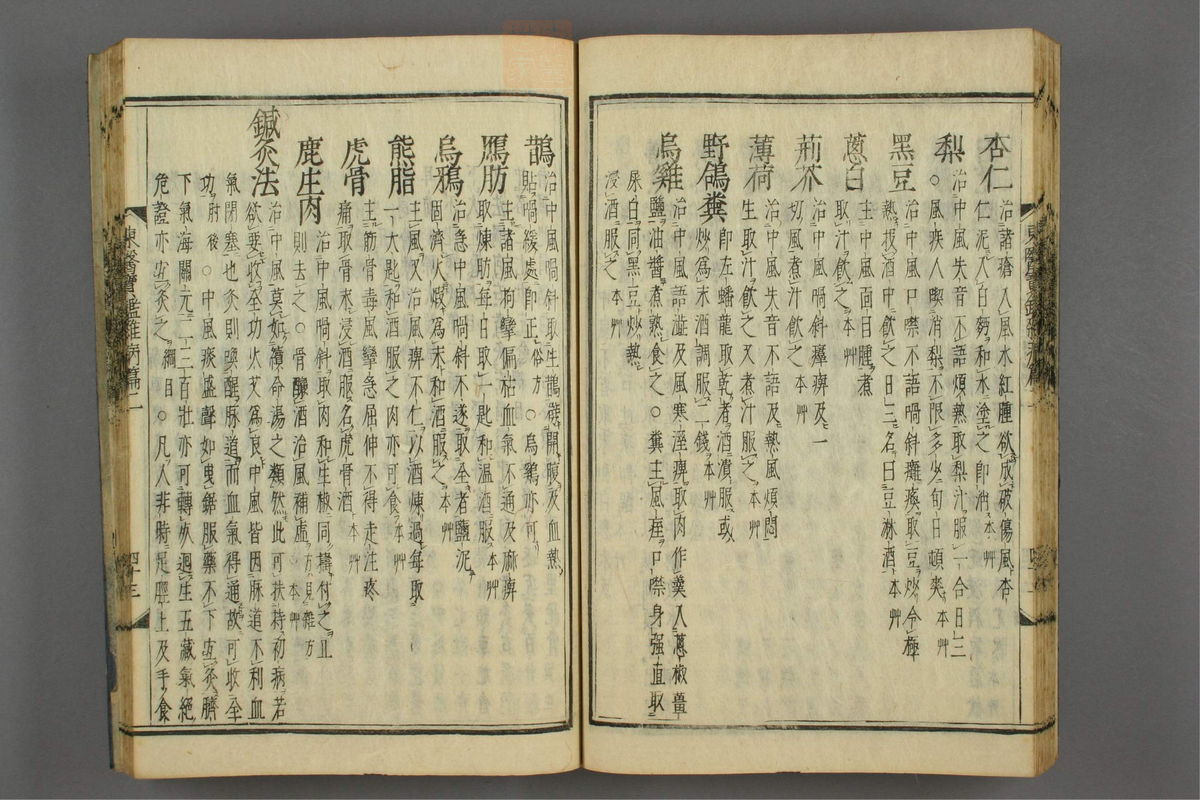 杏仁
治諸瘡入風水紅腫欲成破傷風杏
仁泥入白麪和水塗之卽消本艸
梨
治中風失音不語煩熱取梨汁服一合日二
○風疾人喫消梨不限多少旬日頓爽本艸
黑豆
治中風口噤不語喎斜癱瘓取豆炒令極
熱投酒中飮之日三名曰豆淋酒本艸
蔥白
主中風面目腫煮
取汁飮之本艸
荊芥
治中風喎斜𤹪痺及一
切風煮汁飮之本艸
薄荷
治中風失音不語及熱風煩悶
生取汁飮之又煮汁服之本艸
野鴿糞
卽左蟠龍取乾者酒漬服或
炒爲末酒調服二錢本艸
烏雞
治中風語澁及風寒溼痺取肉作羹入蔥椒薑
鹽油醬煮熟食之○糞主風痓口噤身强直取
屎白同黑豆炒熱
浸酒服之本艸
鵲
治中風喎斜取生鵲劈開腹及血熱
貼喎緩處卽正俗方○烏鷄亦可
鴈肪
主諸風拘攣偏枯血氣不通及麻痺
取煉肪每日取一匙和温酒服本艸
烏鴉
治急中風喎斜不遂取全者鹽泥
固濟火煅爲末和酒服之本艸
熊脂
主風又治風痺不仁以酒煉過每取
一大匙和酒服之肉亦可食本艸
虎骨
主筋骨毒風攣急屈伸不得走注疼
痛取骨末浸酒服名虎骨酒本艸
鹿生肉
治中風喎斜取肉和生椒同擣付之正
則去○骨釀酒治風補虛方見雜方○本艸
鍼灸法
治中風莫如續命湯之類然此可扶持初病若
欲要收全功火艾爲良中風皆因脉道不利血
氣閉塞也灸則喚醒脉道而血氣得通故可收全
功肘後○中風痰盛聲如曳鋸服藥不下宜灸臍
下氣海關元二三百壯亦可轉灰迴生五藏氣絶
危證亦宜灸之綱目○凡人非時足脛上及手食
東醫寶鑑雜病篇二
四十三